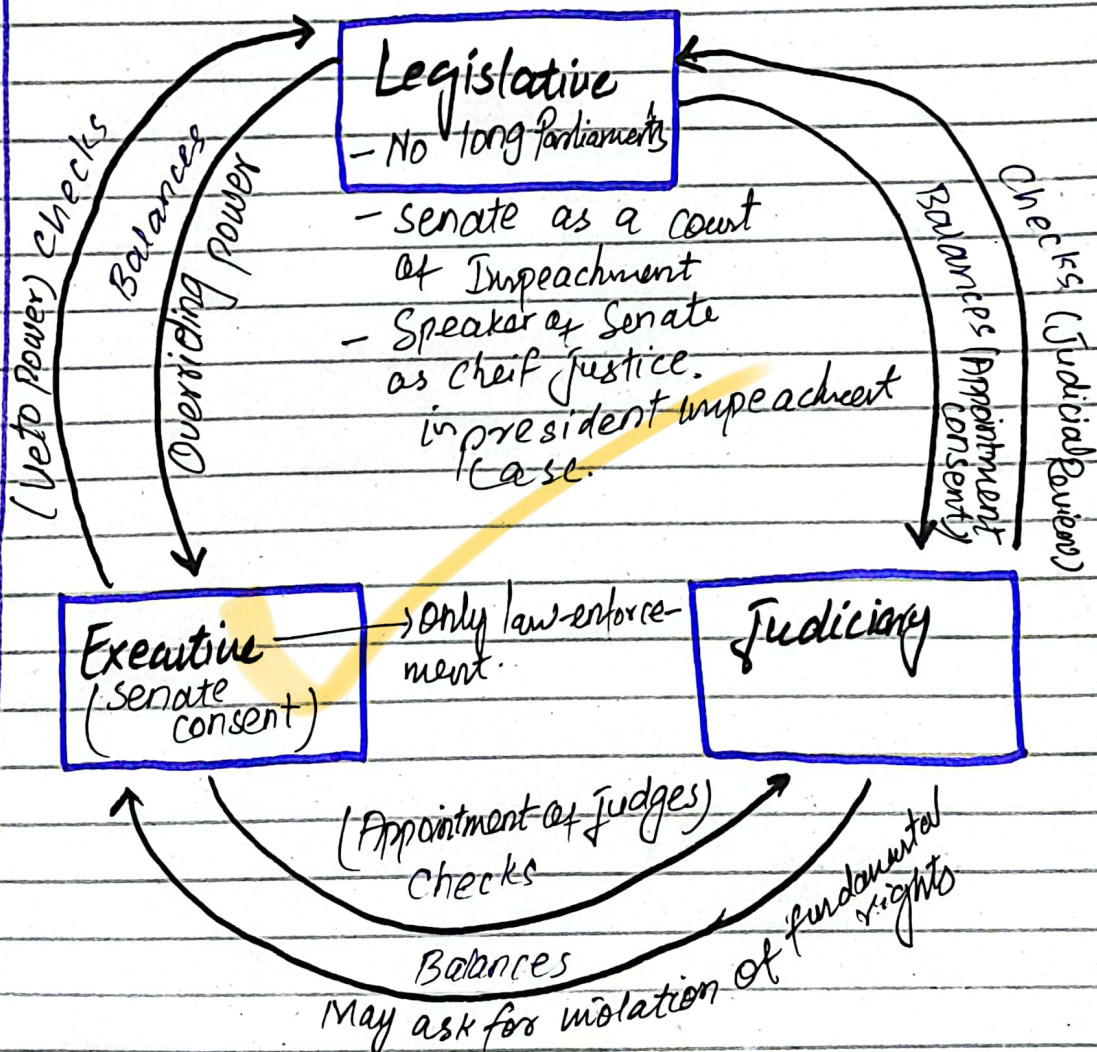 Legislative
- No long Parliaments
- Senate as a court
of Impeachment
- Speaker of Senate
as cheif Justice.
in president impeachment
case.
(Veto Power) Checks
Balances
Overriding power
Checks (Judicial Review)
Balances (Appointment
consent)
Executive
(Senate
consent)
only law-enforce-
ment.
Judiciary
(Appointment of Judges)
Checks
Balances
May ask for violation of fundamental
rights